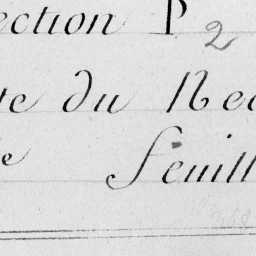 ection P 2
te du Nec
e Feuill